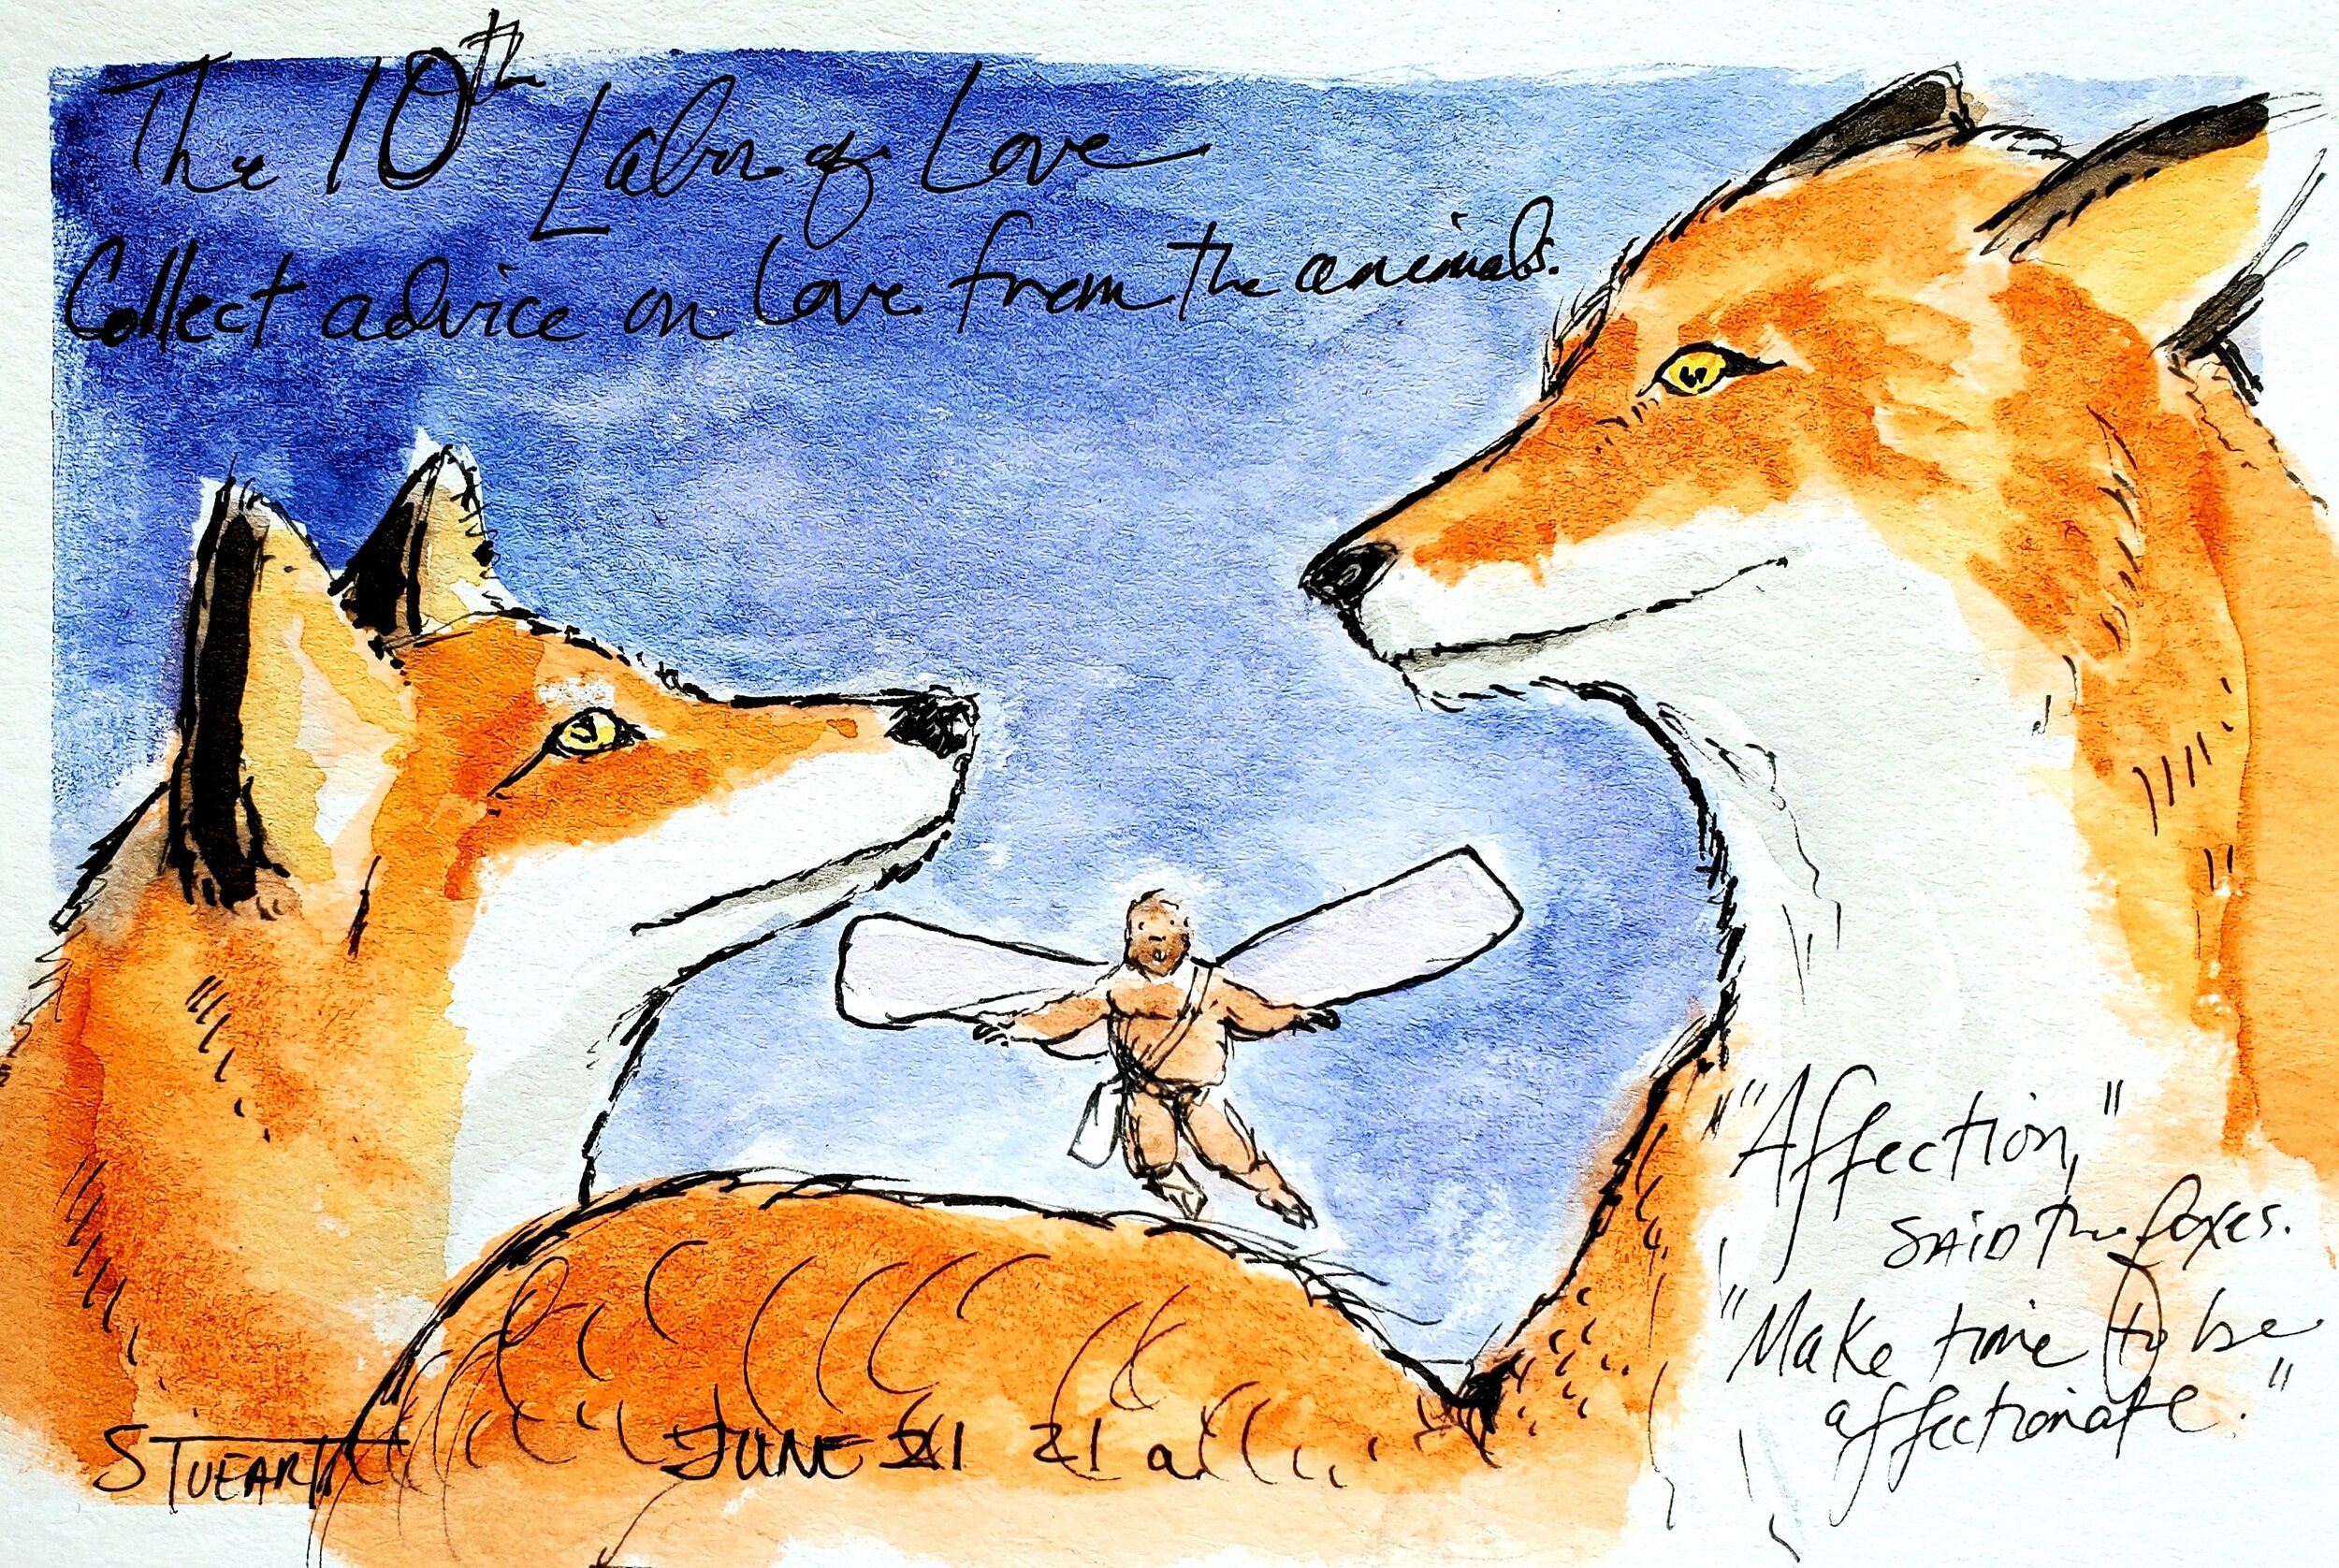 The 10th Labor of Love
Collect advice on love from the animals.
"Affection,"
SAID the foxes.
"Make time to be
affectionate."
STUEART
JUNE 21 21 a